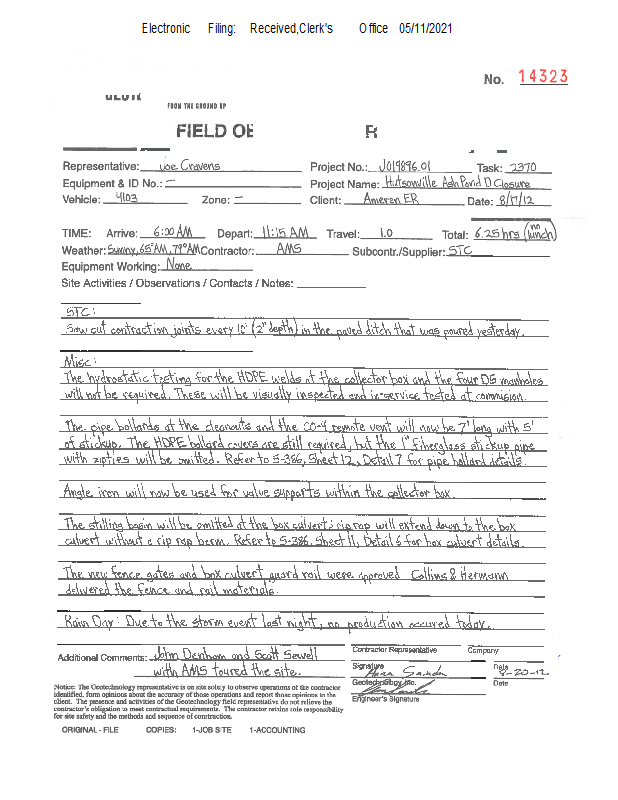 Electronic Filing: Received,Clerk's Office 05/11/2021
No. 14323
FROM THE GROUND UP
FIELD OB R
Representative: Joe Cravens Project No.: J019896.01 Task: 2370
Equipment & ID No.: – Project Name: Hutsonville Ash Pond D Closure
Vehicle: 4103 Zone: – Client: Ameren ER Date: 8/17/12
TIME: Arrive: 6:00 AM Depart: 11:15 AM Travel: 1.0 Total: 6.25 hrs (no lunch)
Weather: Sunny, 65° AM, 79° AM Contractor: AMS Subcontr./Supplier: STC
Equipment Working: None
Site Activities / Observations / Contacts / Notes:
STC:
Saw cut contraction joints every 10' (2" depth) in the paved ditch that was poured yesterday.
Misc:
The hydrostatic testing for the HDPE welds at the collector box and the four DS manholes
will not be required. These will be visually inspected and in-service tested at commision.
The pipe bollards at the cleanouts and the CO-4 remote vent will now be 7' long with 5'
of stickup. The HDPE bollard covers are still required, but the 1" fiberglass stickup pipe
with zipties will be omitted. Refer to S-386, Sheet 12, Detail 7 for pipe bollard details.
Angle iron will now be used for valve supports within the collector box.
The stilling basin will be omitted at the box culvert; rip rap will extend down to the box
culvert without a rip rap berm. Refer to S-386, Sheet 11, Detail 6 for box culvert details.
The new fence gates and box culvert guard rail were approved. Collins & Hermann
delivered the fence and rail materials.
Rain Day: Due to the storm event last night, no production occured today.
Additional Comments: John Denham and Scott Sewell
with AMS toured the site.
Contractor Representative Company
Signature Date
8-20-12
Geotechnology, Inc. Date
Engineer's Signature
Notice: The Geotechnology representative is on site solely to observe operations of the contractor
identified, form opinions about the accuracy of those operations and report those opinions to the
client. The presence and activities of the Geotechnology field representative do not relieve the
contractor's obligation to meet contractual requirements. The contractor retains sole responsibility
for site safety and the methods and sequence of construction.
ORIGINAL - FILE COPIES: 1-JOB SITE 1-ACCOUNTING